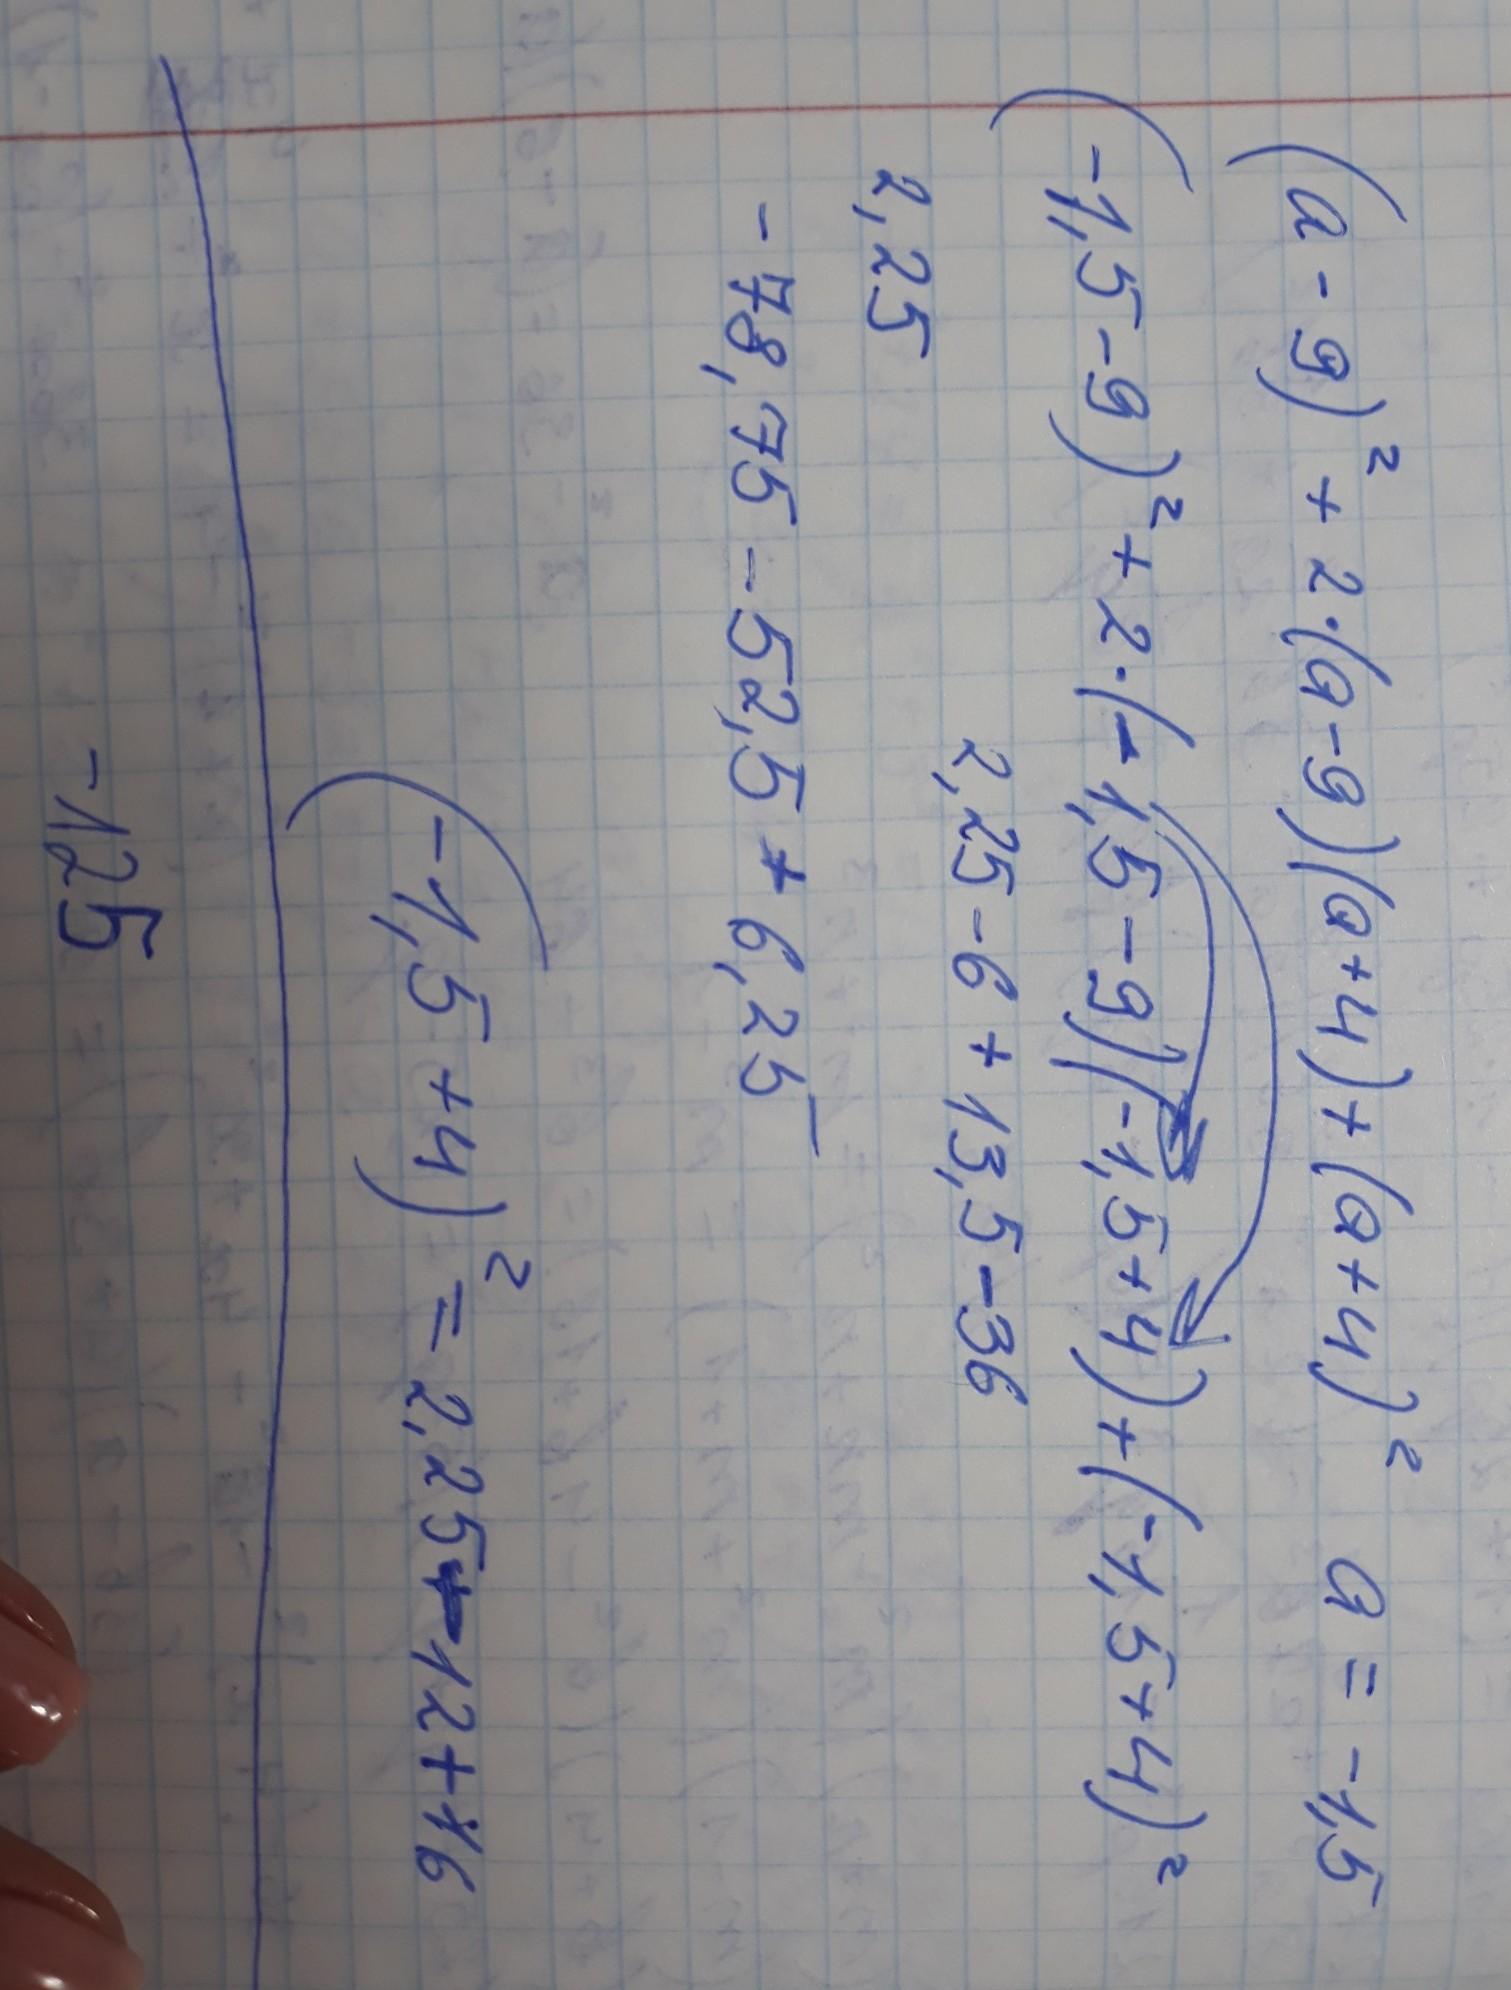 (a - 9)² + 2·(a-9)(a+4) + (a+4)² a = -1,5
(-1,5-9)² + 2·(-1,5-9)(-1,5+4) + (-1,5+4)²
2,25-6+13,5-36
2,25
-78,75 - 52,5 + 6,25
(-1,5+4)² = 2,25-12+16
-125